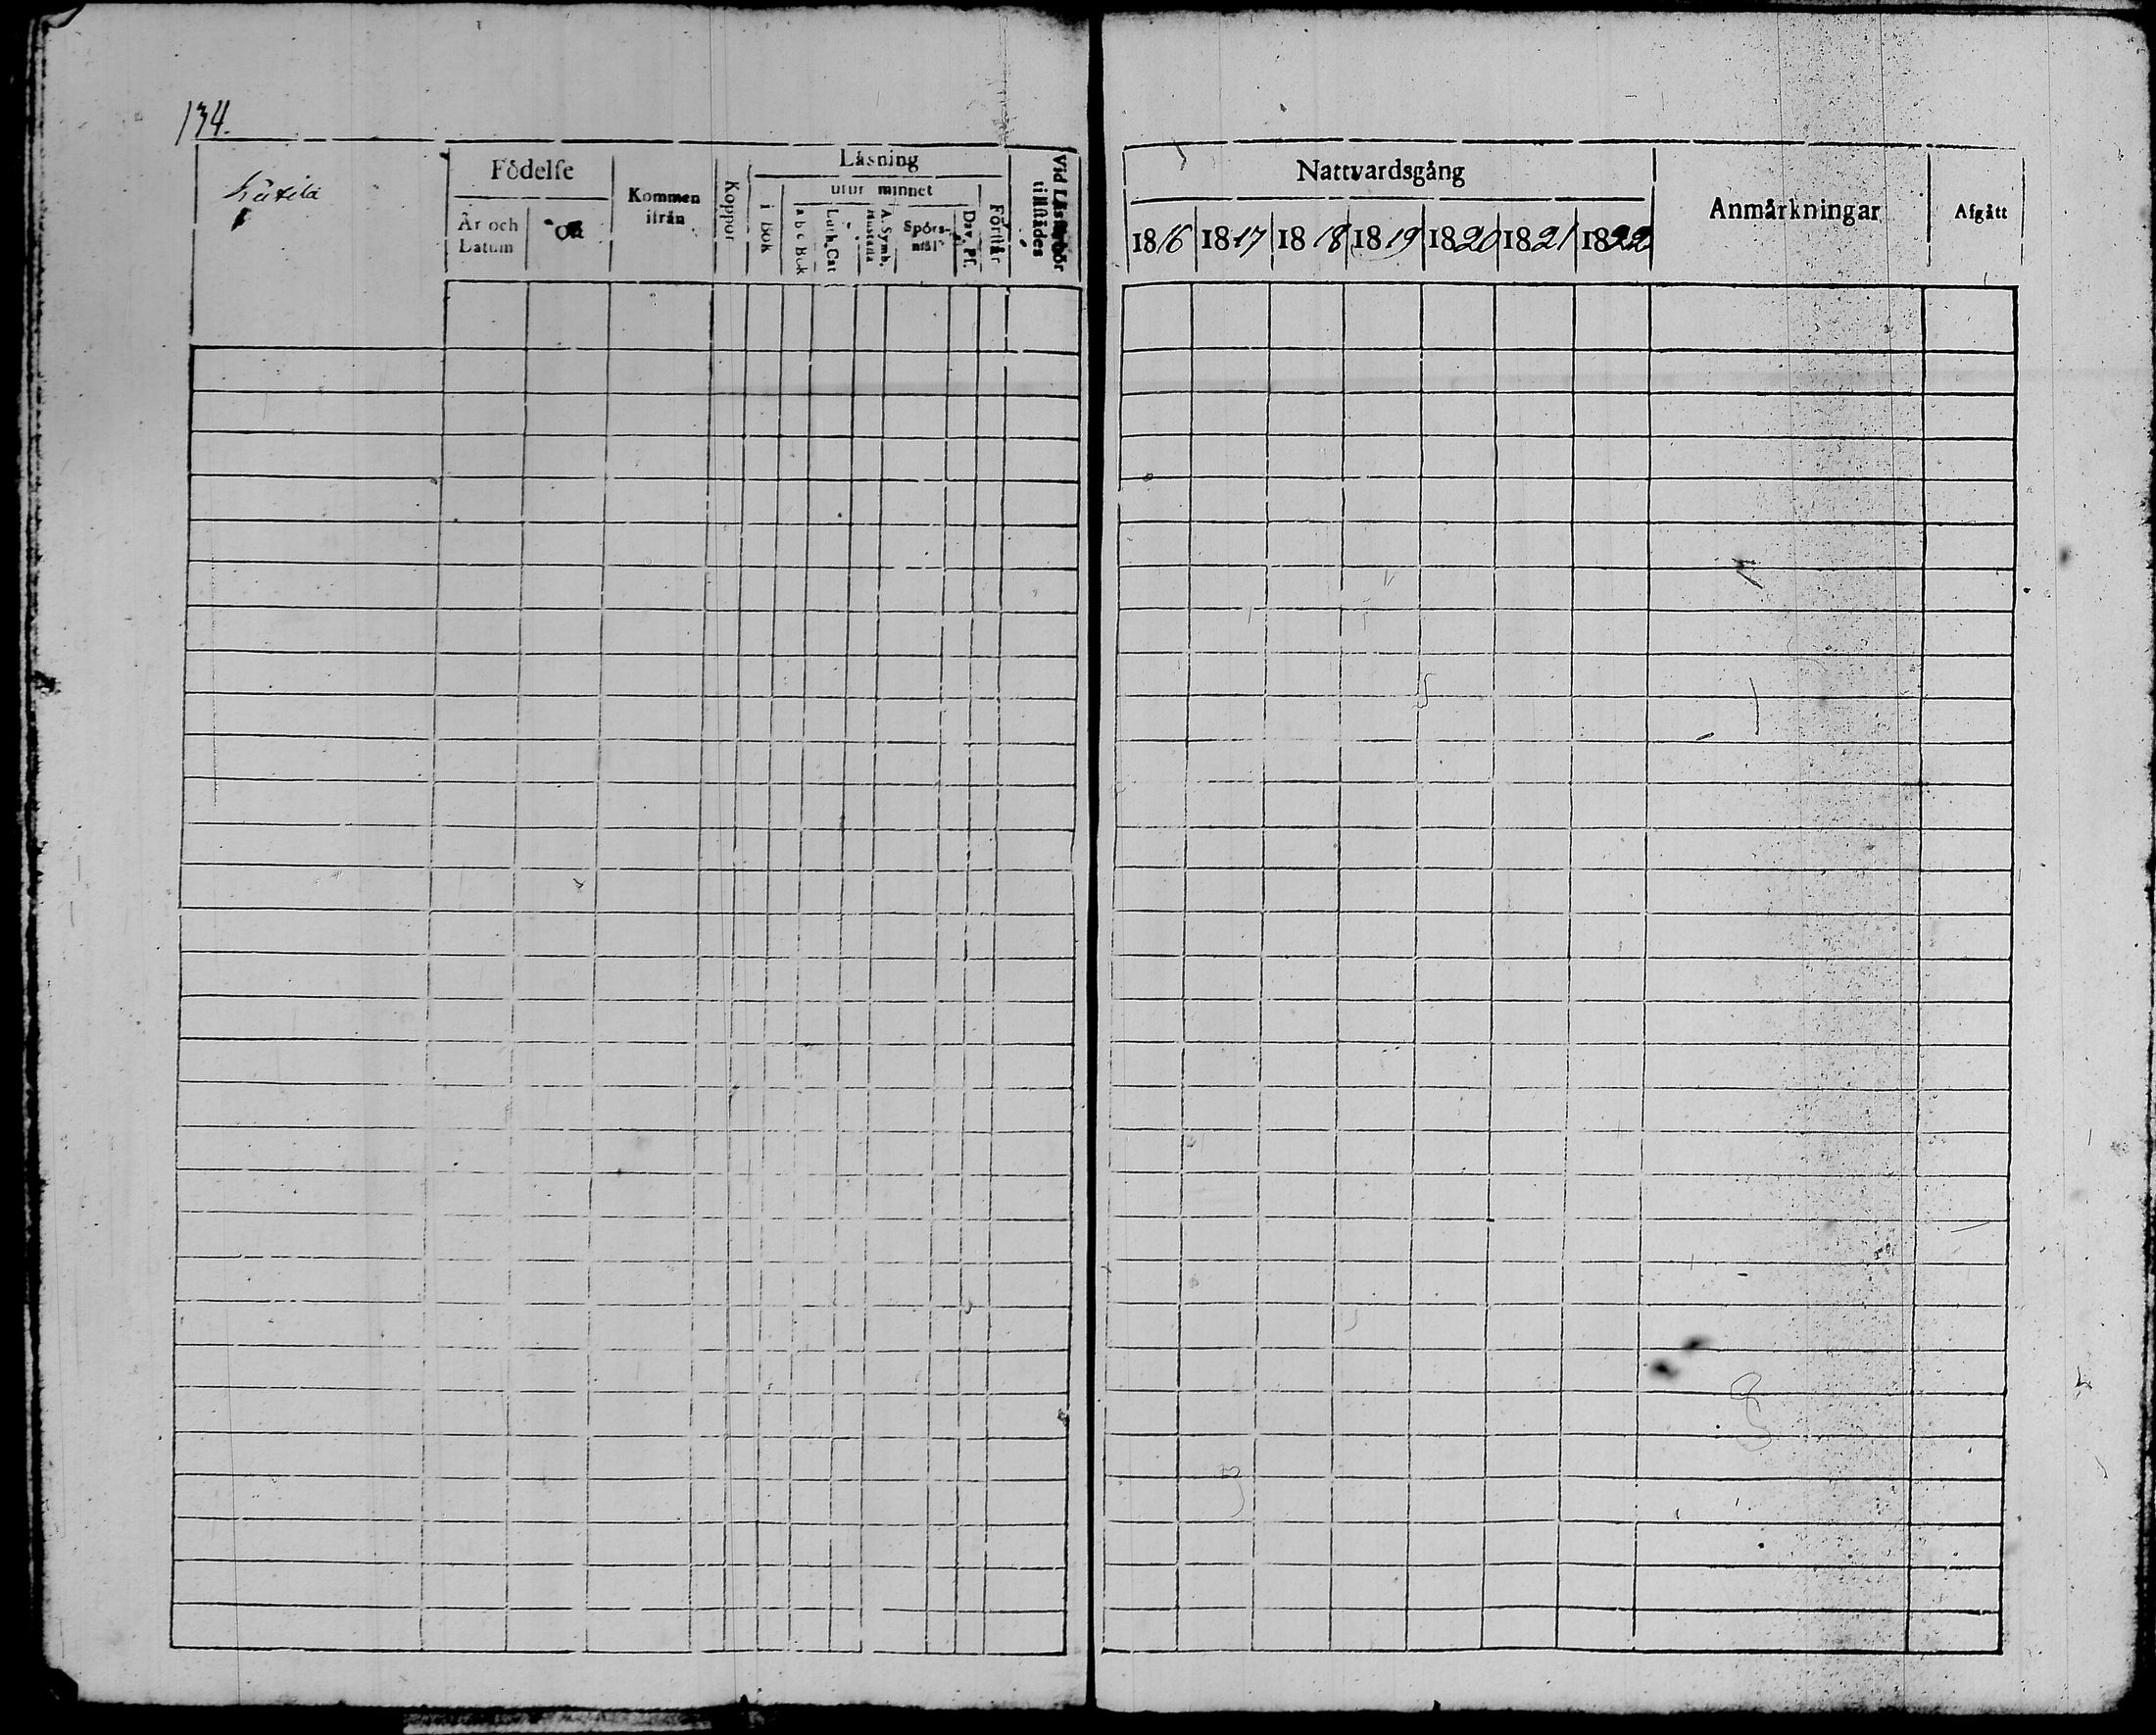 134.
Kätilä
Födelse
År och Datum
Ort
Kommen ifrån
Koppor
Läsning
i Bok
utur minnet
a b c Bok
Luth. Cat
A. Symb.
Hustafla
Spörs-mål
Dav. Ps.
Förstår
Vid Läsförhör tillstädes
Nattvardsgång
1816 1817 1818 1819 1820 1821 1822
Anmärkningar
Afgått